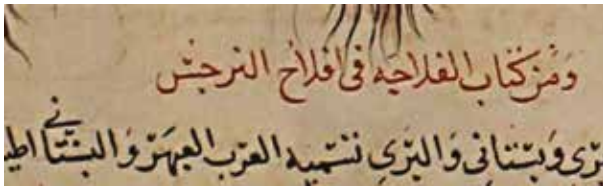 ومن كتاب الفلاحه فى افلاح النرجس
برى وبستانى والبرى تسميه العرب العبهر والبستانى اطيب